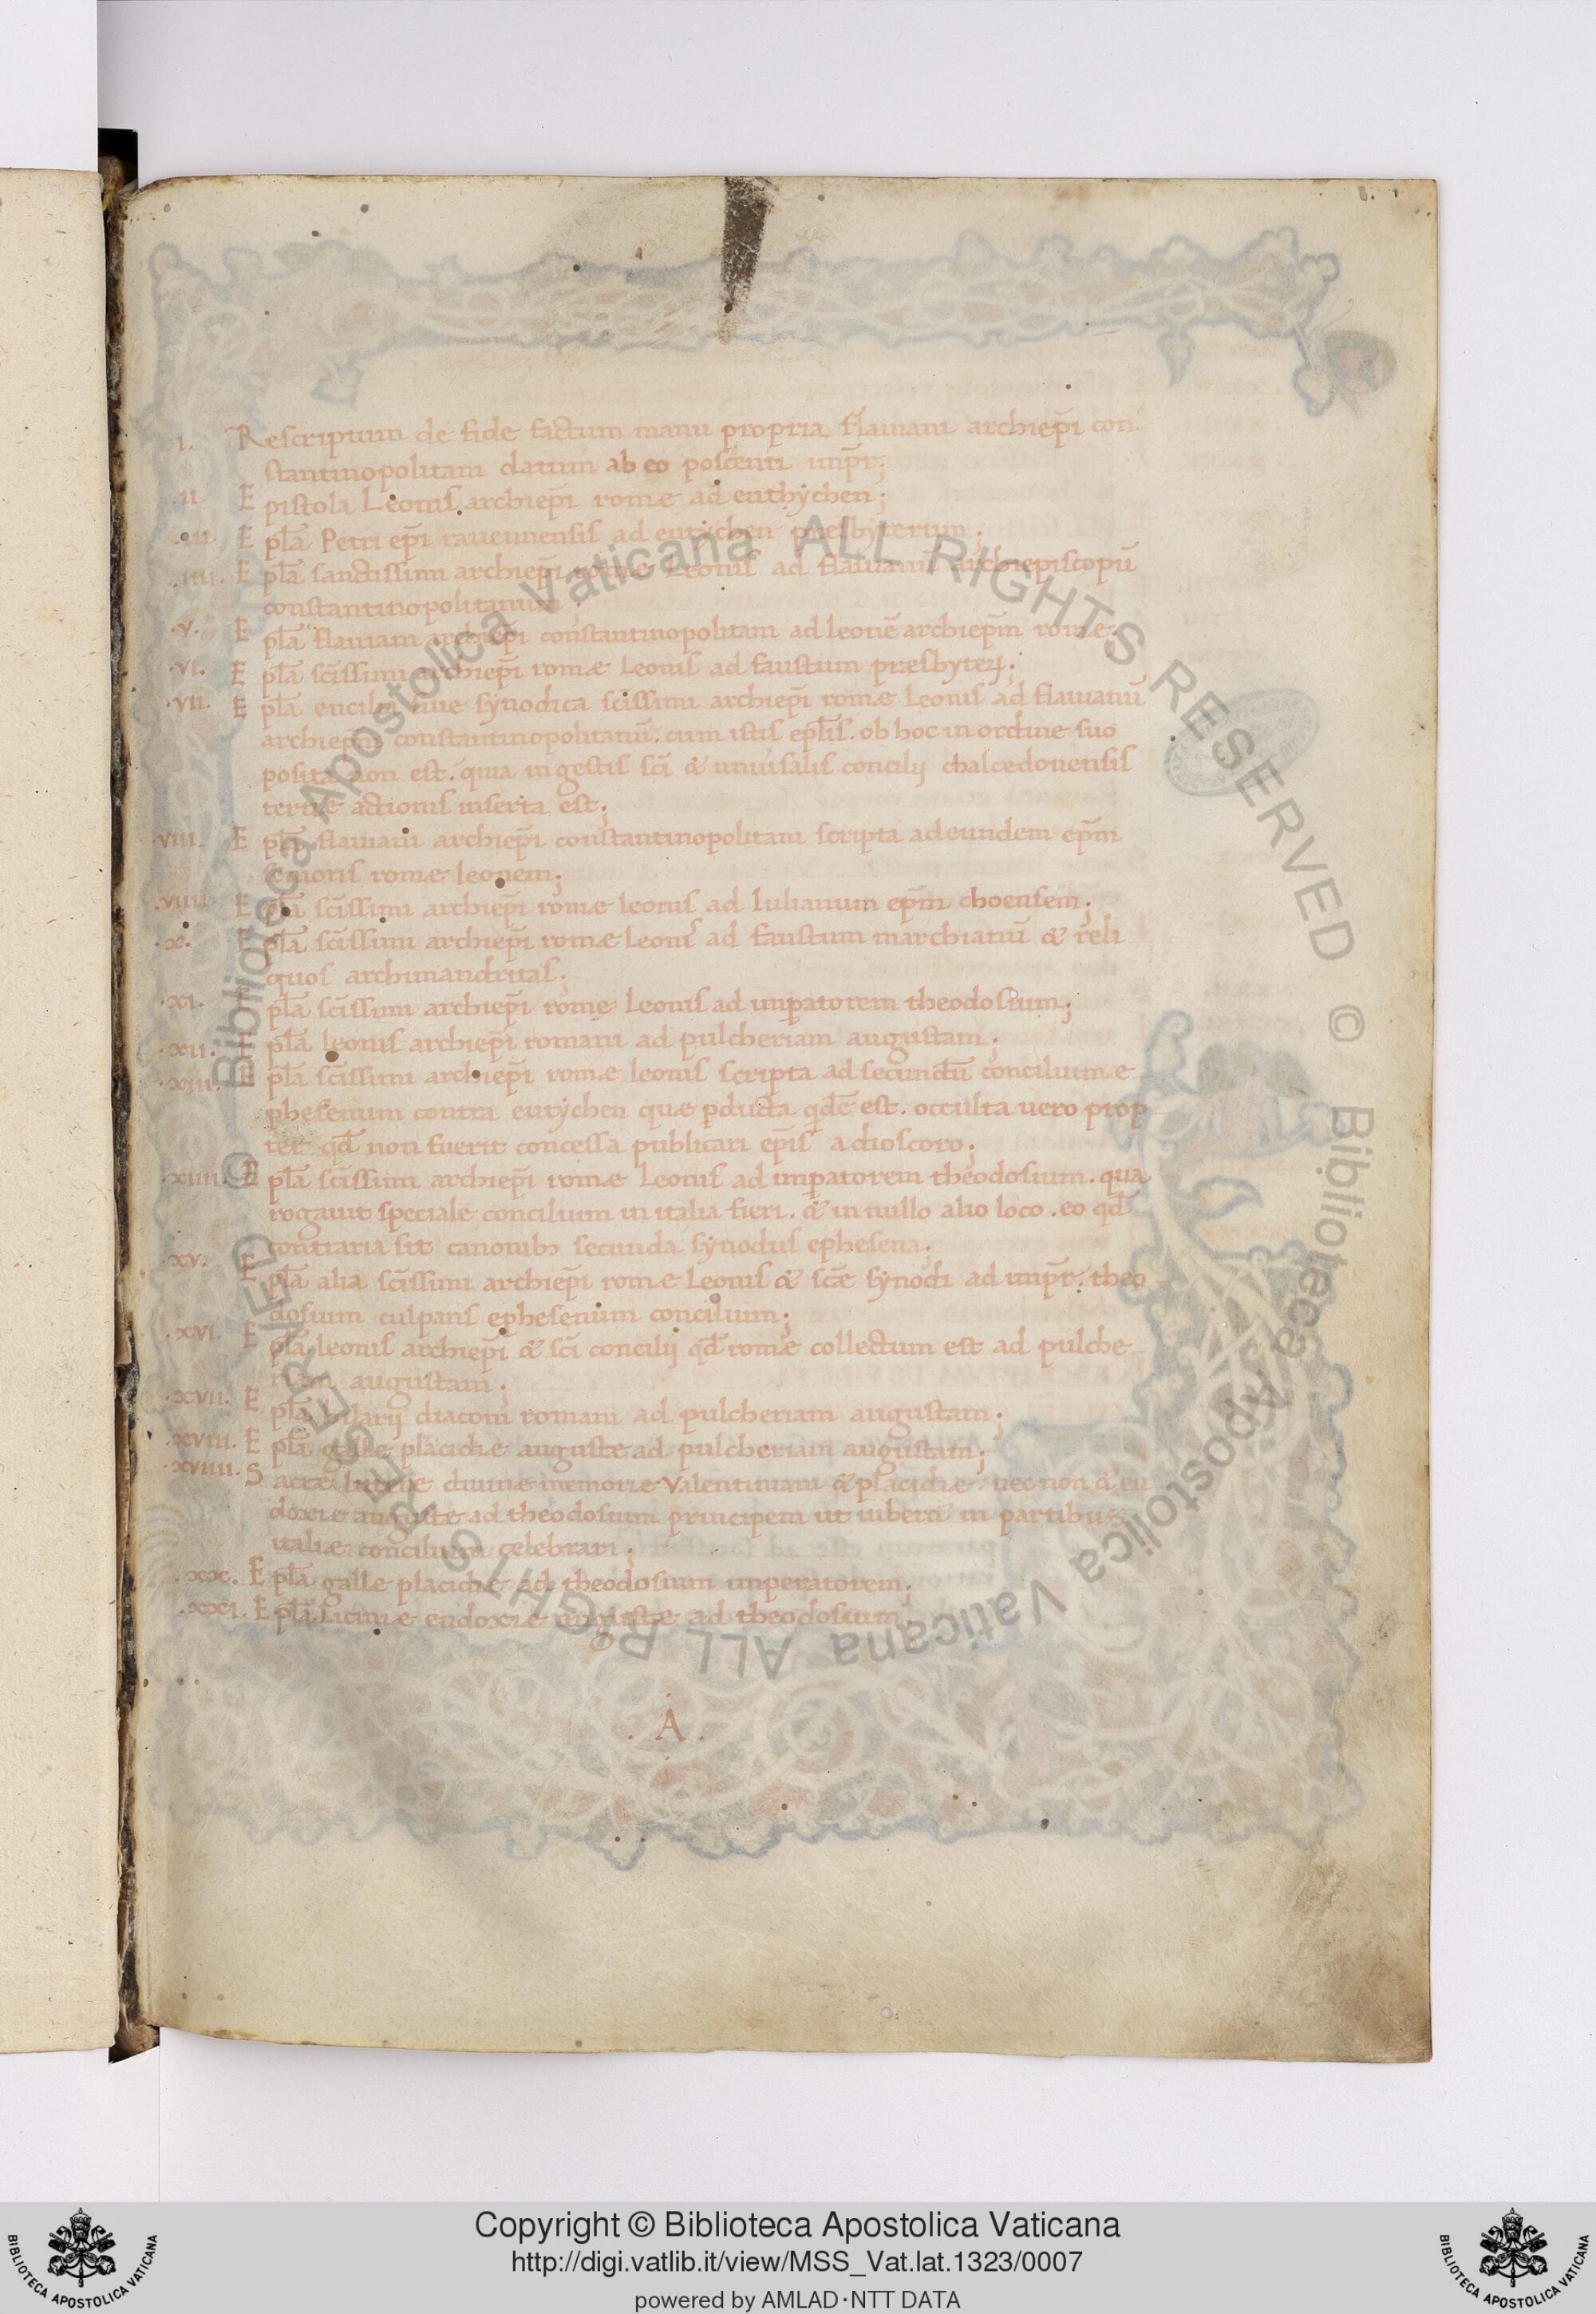 .I. Rescriptum de fide factum manu propria flauiani archiep̄i con
stantinopolitani datum ab eo poscenti imp̄r;
.II. Epistola Leonis archiep̄i romæ ad euthẏchen;
.III. Epl̄a Petri ep̄i rauennensis ad eutẏchen presbyterum;
.IIII. Epl̄a sanctissimi archiep̄i romæ Leonis ad flauianū archiepiscopū
constantinopolitanum;
.V. Epl̄a flauiani archiep̄i constantinopolitani ad leonē archiep̄m romæ.
.VI. Epl̄a sc̄issimi archiep̄i romæ Leonis ad faustum præsbyteꝝ;
.VII. Epl̄a siue sẏnodica sc̄issimi archiep̄i romæ Leonis ad flauianū
archiep̄m constantinopolitanū. cum istis epl̄is. ob hoc in ordine suo
posita non est. quia in gestis sc̄i & uniu̇salis concilij chalcedonensis
tertiæ actionis inserta est;
.VIII. Epl̄a flauiani archiep̄i constantinopolitani scripta ad eundem ep̄m
romæ leonem;
.VIIII. Epl̄a sc̄issimi archiep̄i romæ leonis ad Iulianum ep̄m choensem;
.X. Epl̄a sc̄issimi archiep̄i romæ leonis ad faustum marchianū & reli
quos archimandritas;
.XI. Epl̄a sc̄issimi archiep̄i romę Leonis ad imꝑatorem theodosium;
.XII. Epl̄a leonis archiep̄i romani ad pulcheriam augustam;
.XIII. Epl̄a sc̄issimi archiep̄i romæ leonis scripta ad secundū concilium e
phesenum contra eutẏchen quæ ꝑducta qd̄ē est. occulta uero prop
ter qd̄ non fuerit concessa publicari ep̄is a dioscoro;
.XIIII. Epl̄a sc̄issimi archiep̄i romæ Leonis ad imꝑatorem theodosium. qua
rogauit speciale concilium in italia fieri. & in nullo alio loco. eo qd̄
contraria sit canonibꝫ secunda sẏnodus ephesena;
.XV. Epl̄a alia sc̄issimi archiep̄i romæ Leonis & sc̄æ sẏnodi ad imp̄r. theo
dosium culpans ephesenum concilium;
.XVI. Epl̄a leonis archiep̄i & sc̄i concilij qd̄ romæ collectum est ad pulche
riam augustam;
.XVII. Epl̄a hilarij diaconi romani ad pulcheriam augustam;
.XVIII. Epl̄a galle placidiæ auguste ad pulcheriam augustam;
.XVIIII. Sacræ litteræ diuinæ memoriæ Valentiniani & placidiæ. nec non & eu
doxiæ auguste ad theodosium principem ut iuberet in partibus
italiæ concilium celebrari;
.XX. Epl̄a galle placidiæ ad theodosium imperatorem;
.XXI. Epl̄a Liciniæ eudoxiæ augustæ ad theodosium;
. A .
© Biblioteca Apostolica Vaticana ALL RIGHTS RESERVED © Biblioteca Apostolica Vaticana ALL RIGHTS RESERVED
BIBLIOTECA APOSTOLICA VATICANA
Copyright © Biblioteca Apostolica Vaticana
http://digi.vatlib.it/view/MSS_Vat.lat.1323/0007
powered by AMLAD·NTT DATA
BIBLIOTECA APOSTOLICA VATICANA